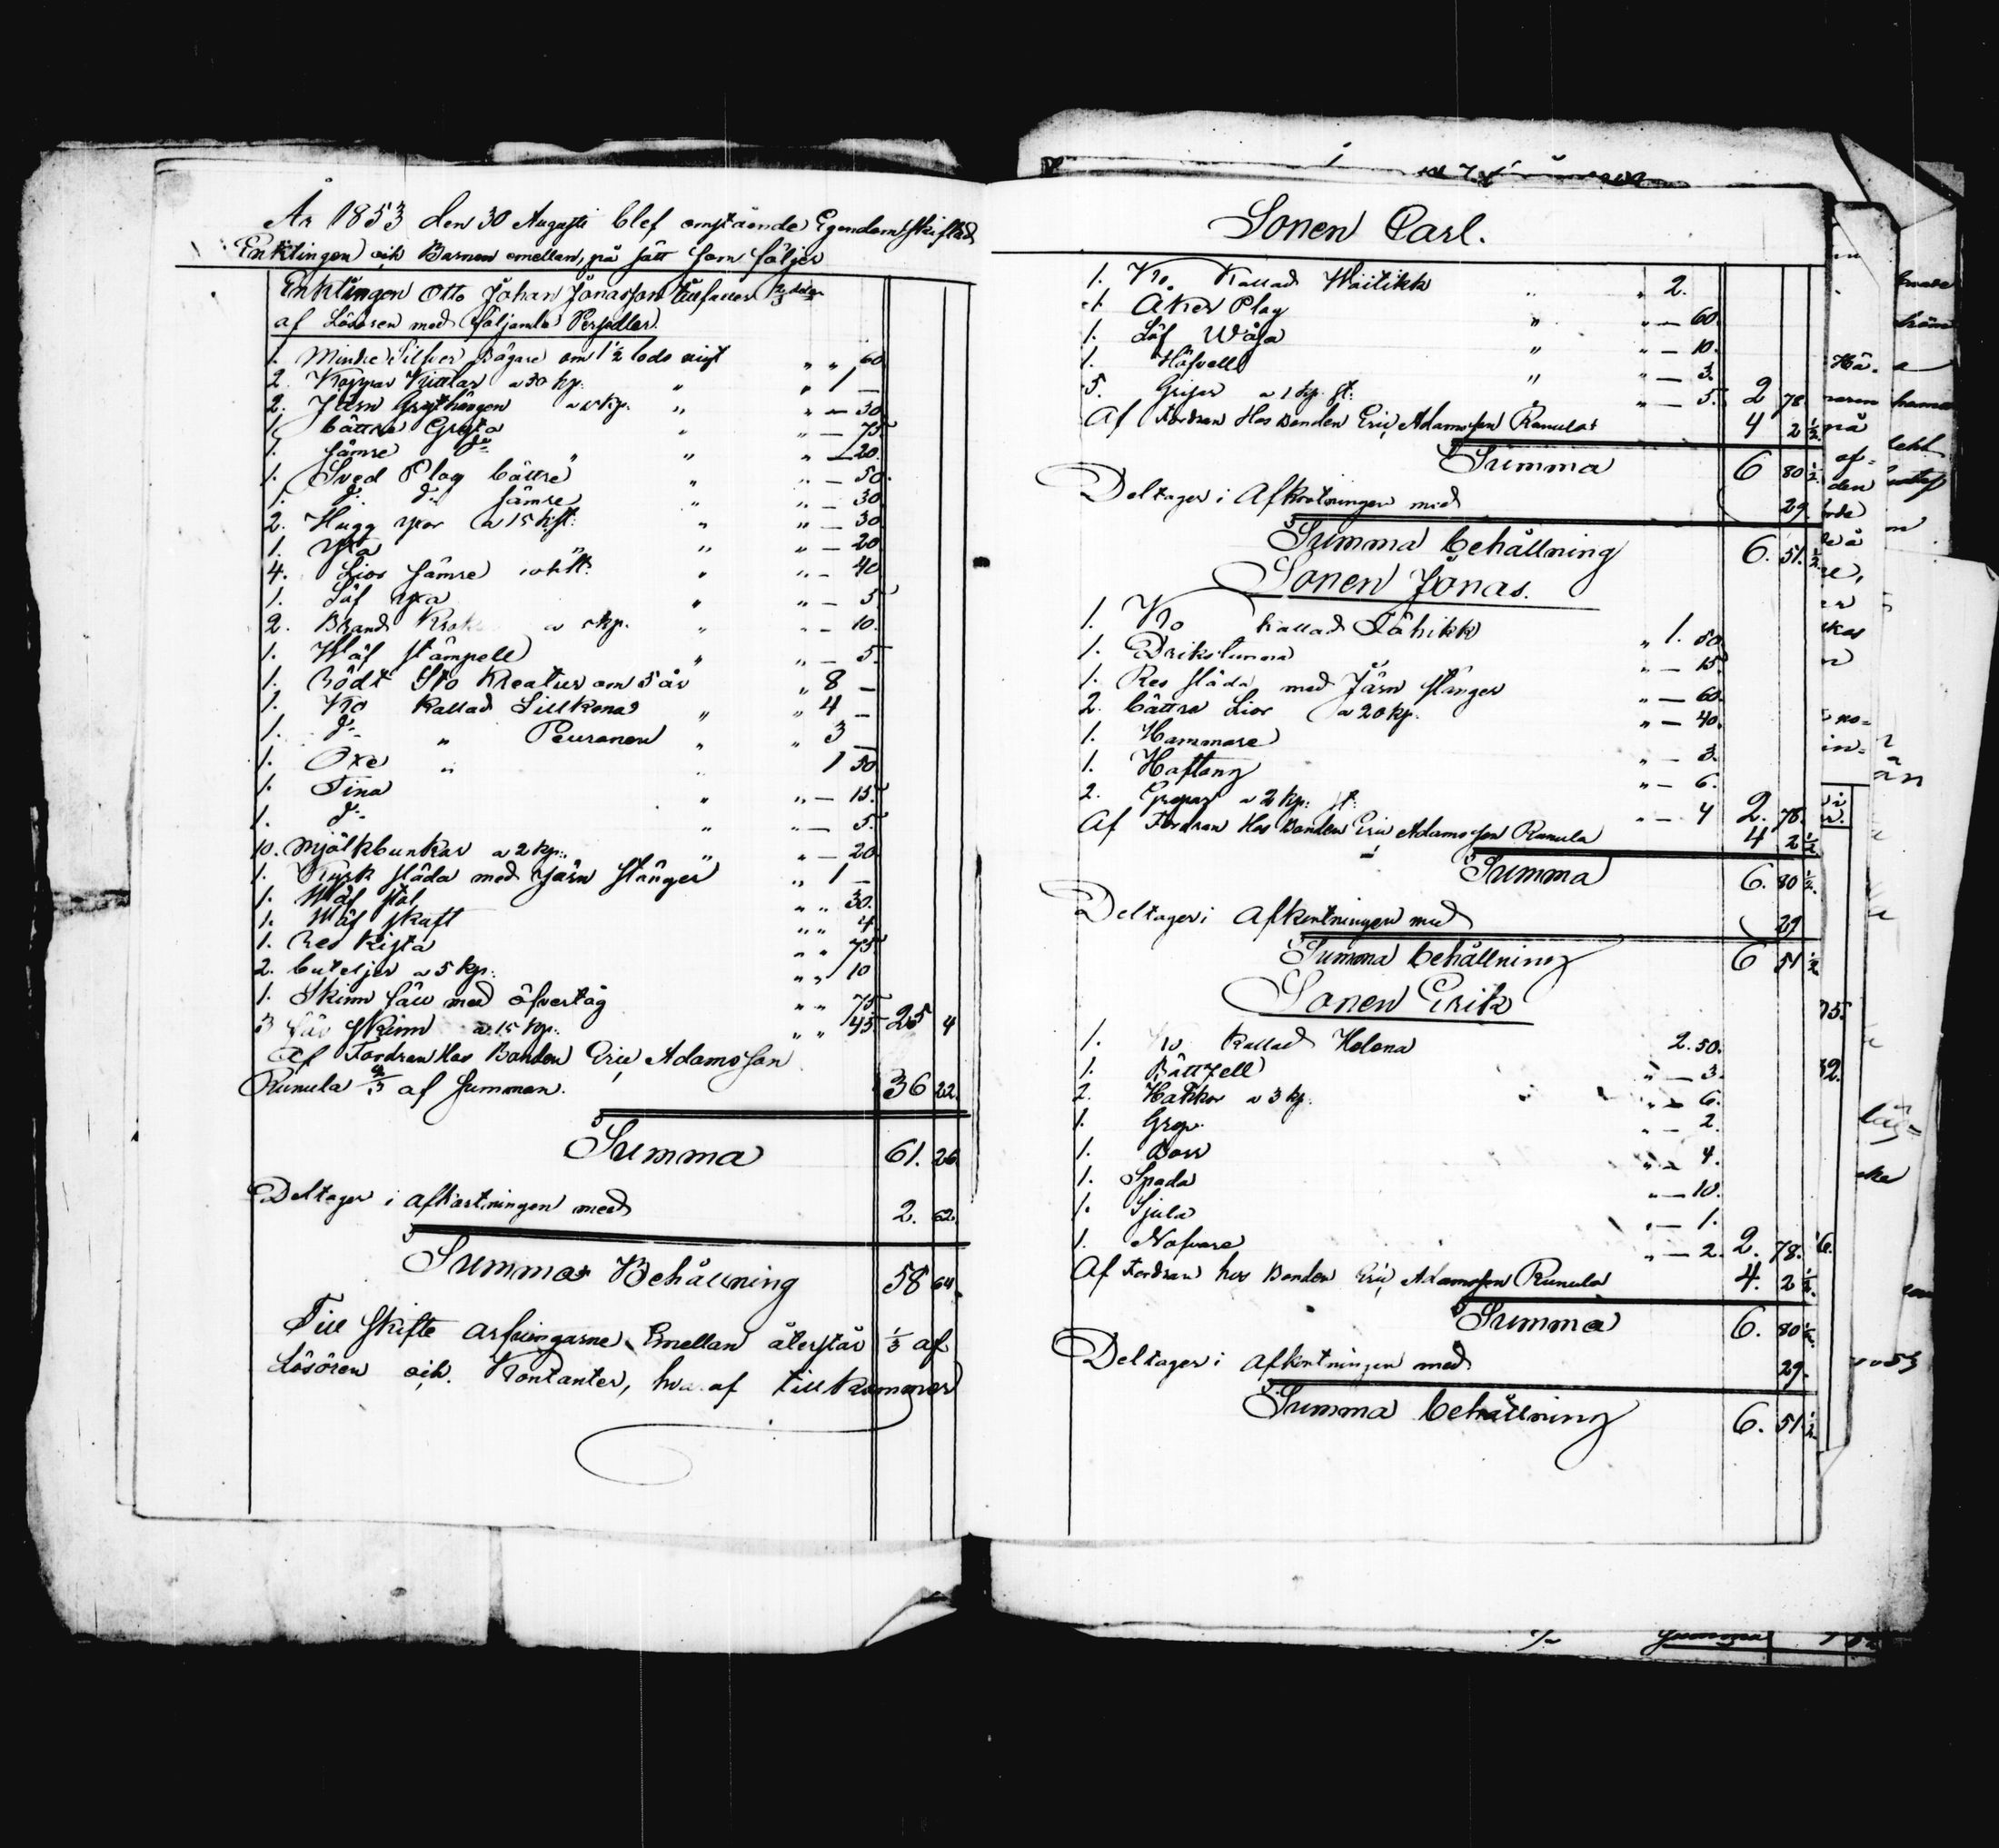 År 1853 den 30 Augusti blef omstående Egendom skiftad
Enklingen och Barnen emellan, på sätt som följer
Enklingen Otto Johan Jonasson tillfaller 2/3 delar
af Lösören med följande Persedlar.
1. Mindre Silfver Bägare om 1 1/2 lods vigt " " 60
2. Koppar Kittlar a 30 kp: " " 1 —
2. Järn Grythängen a 15 kp. " " — 30
1. bättre Gryta " " — 75
1. sämre do " " — 20.
1. Sved Plog bättre " " — 50.
1. do do sämre " " — 30
2. Hugg yxor a 15 k st: " " — 30
1. yxa " " — 20
4. Lior sämre 10 k st: " " — 40
1. Löf yxa " " — 5
2. Brand Krok a 5 kp. " " — 10.
1. Wäf stämpell " " — 5.
1. Rödt Sto Kreatur om 5 år " 8 —
1. Ko Kallad Lillkona " " 4 —
1. do " Peuranen " " 3 —
1. Oxe " " 1 50
1. Tina " " — 15.
1. do " " — 5.
10. Mjölkbunkar a 2 kp: " " — 20
1. Kyrk släda med Järn stänger " 1 —
1. Wäf stol " " 30.
1. Wäf skatt " " 4
1. Res Kista " " 75.
2. buteljer a 5 kp: " " 10
1. Skinn fäll med öfvertåg " " 75
3 får skinn a 15 kp: " " 45 25 4
Af Fordran Hos Bonden Eric Adamsson
Runula 2/3 af summan. 36 22.
Summa 61. 26
Deltager i afkortningen med 2. 62.
Summa Behållning 58 64.
Till skifte arfvingarne Emellan återstår 1/3 af
Lösören och Kontanter, hvaraf tillkommer
Sonen Carl.
1. Ko. Kallad Waitikk " " 2.
1. Åker Plog " " — 60.
1. Löf " — 10.
1. " — 3.
5. Gripar a 1 kp. st: " — 5. 2 78
Af Fordran Hos Bonden Eric Adamsson Runula 4 2 1/2
Summa 6 80 1/2
Deltager i Afkortningen med 29.
Summa behållning 6. 51. 1/2
Sonen Jonas.
1. Ko kallad Tähikk " 1. 50
1. " — 15
1. Res släda med Järn stänger " — 60.
2. bättre Lior a 20 kp. " — 40.
1. Hammare " — 3.
1. Haftang " — 6.
2. a 2 kp: st: " — 4 2. 78.
Af Fordran Hos Bonden Eric Adamsson Runula 4 2 1/2
Summa 6. 80 1/2
Deltager i Afkortningen med 29
Summa behållning 6 51 1/2
Sonen Erik
1. Ko Kallad Helena 2. 50.
1. Båttfell " — 3.
2. Hakkor a 3 kp. " — 6.
1. Grep. " — 2.
1. Borr " — 4.
1. Spada " — 10.
1. Sjula " — 1.
1. Nafvare " — 2. 2. 78.
Af Fordran hos Bonden Eric Adamsson Runula 4. 2 1/2
Summa 6. 80 1/2
Deltager i afkortningen med 29.
Summa behållning 6. 51. 1/2